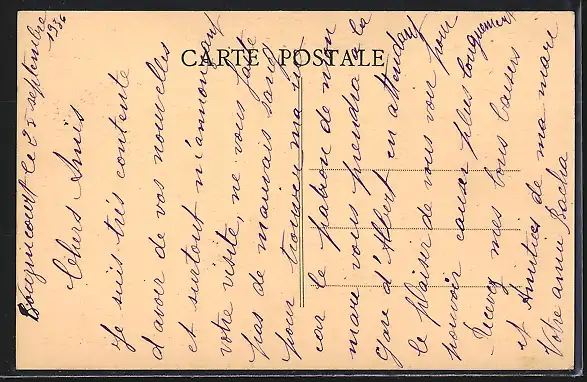 CARTE POSTALE
Bouzincourt le 25 septembre
1936
Chers Amis
Je suis très contente
d'avoir de vos nouvelles
et surtout m'annonçant
votre visite, ne vous faite
pas de mauvais sang
pour trouver ma
car le patron de mon
mare vous prendra a la
gare d'Albert en attendant
le plaisir de vous voir pour
pouvoir causer plus longuement
Recevez mes bons baisers
et Amitiés de ma mare
Votre amie Bacha